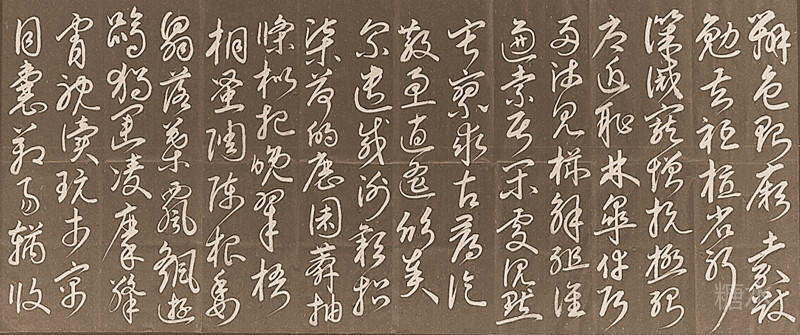 辨色貽厥嘉猷
勉其祗植省躬
譏誡寵增抗極殆
辱近恥林皋幸即
兩疏見機解組誰
逼索居閒處沉默
寂寥求古尋論
散慮逍遙欣奏
累遣慼謝歡招
渠荷的歷園莽抽
條枇杷晚翠梧
桐蚤凋陳根委
翳落葉飄颻遊
鵾獨運凌摩絳
霄耽讀玩市寓
目囊箱易輶攸